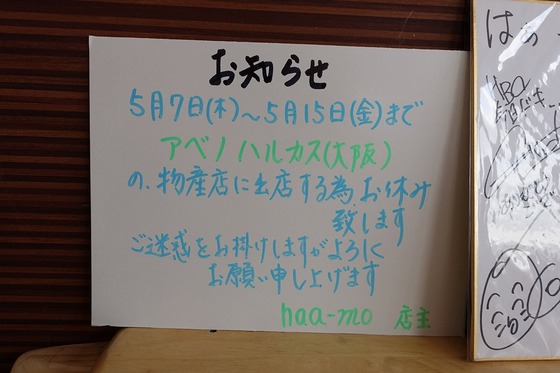 お知らせ
5月7日(木)〜5月15日(金)まで
アベノハルカス(大阪)
の、物産店に出店する為お休み
致します
ご迷惑をお掛けしますがよろしく
お願い申し上げます
haa-mo 店主
はぁ
HBC